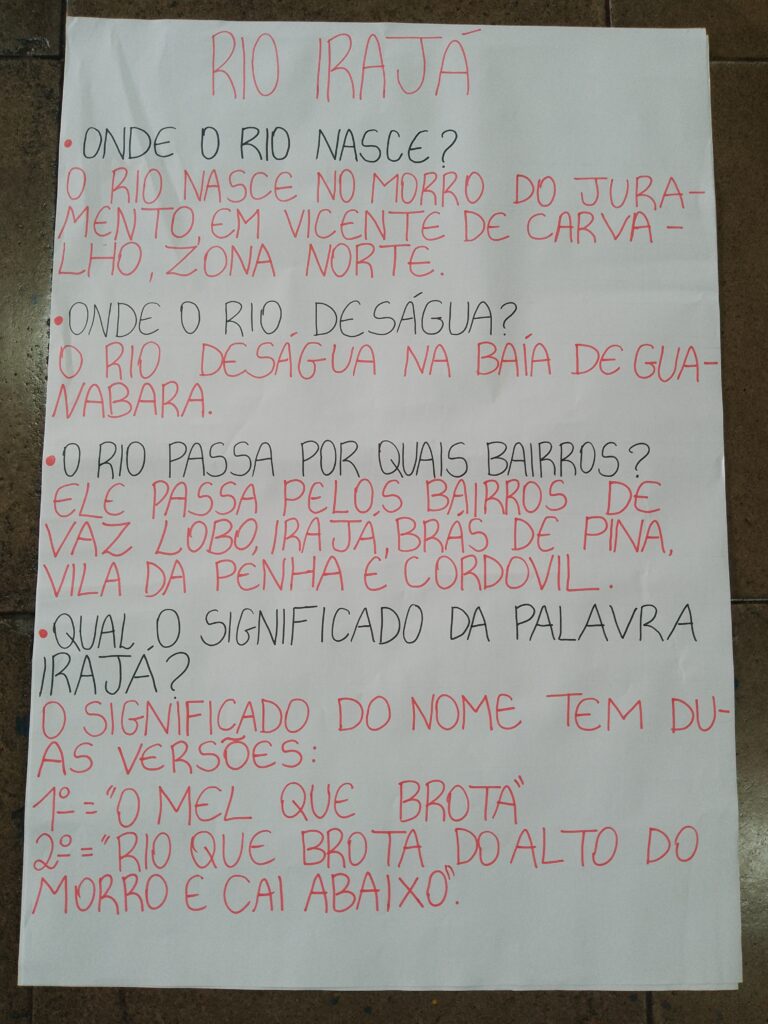 RIO IRAJÁ
• ONDE O RIO NASCE?
O RIO NASCE NO MORRO DO JURA-
MENTO, EM VICENTE DE CARVA-
LHO, ZONA NORTE.
• ONDE O RIO DESÁGUA?
O RIO DESÁGUA NA BAÍA DE GUA-
NABARA.
• O RIO PASSA POR QUAIS BAIRROS?
ELE PASSA PELOS BAIRROS DE
VAZ LOBO, IRAJÁ, BRÁS DE PINA,
VILA DA PENHA E CORDOVIL.
• QUAL O SIGNIFICADO DA PALAVRA
IRAJÁ?
O SIGNIFICADO DO NOME TEM DU-
AS VERSÕES:
1º = "O MEL QUE BROTA"
2º = "RIO QUE BROTA DO ALTO DO
MORRO E CAI ABAIXO".